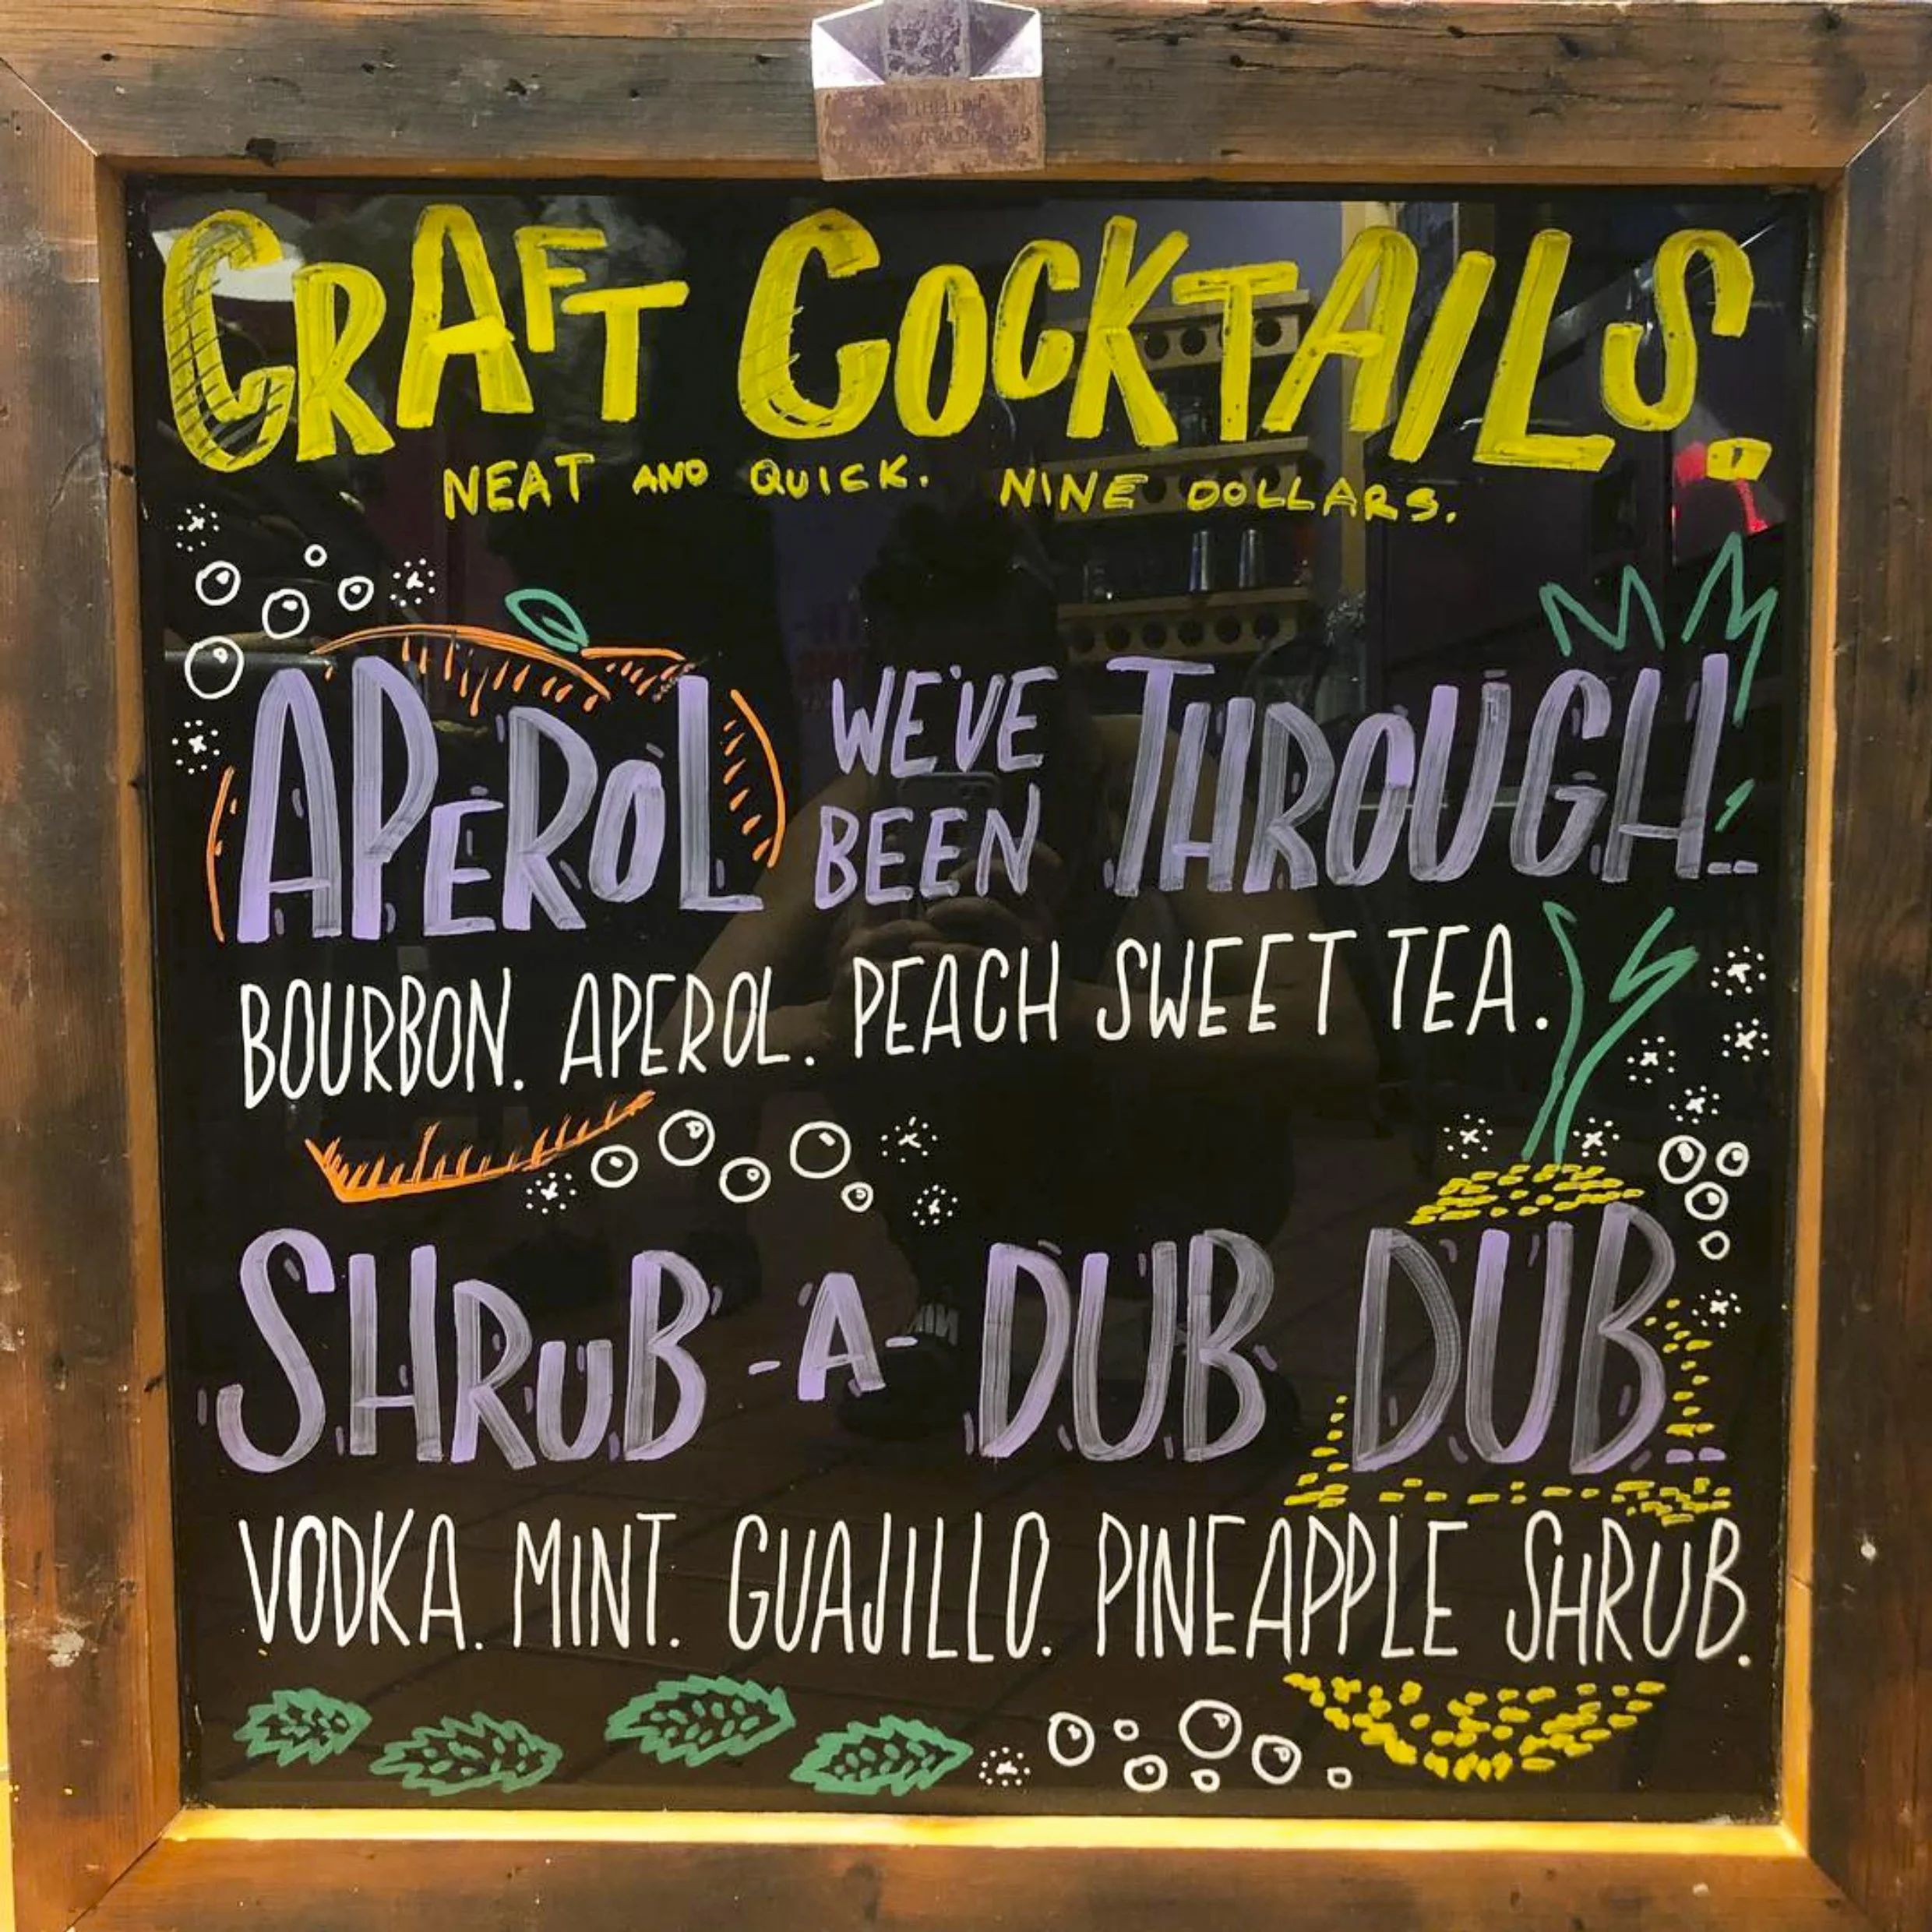 CRAFT COCKTAILS.
NEAT AND QUICK. NINE DOLLARS.
APEROL WE'VE BEEN THROUGH..
BOURBON. APEROL. PEACH SWEET TEA.
SHRUB-A-DUB DUB..
VODKA. MINT. GUAJILLO. PINEAPPLE SHRUB.